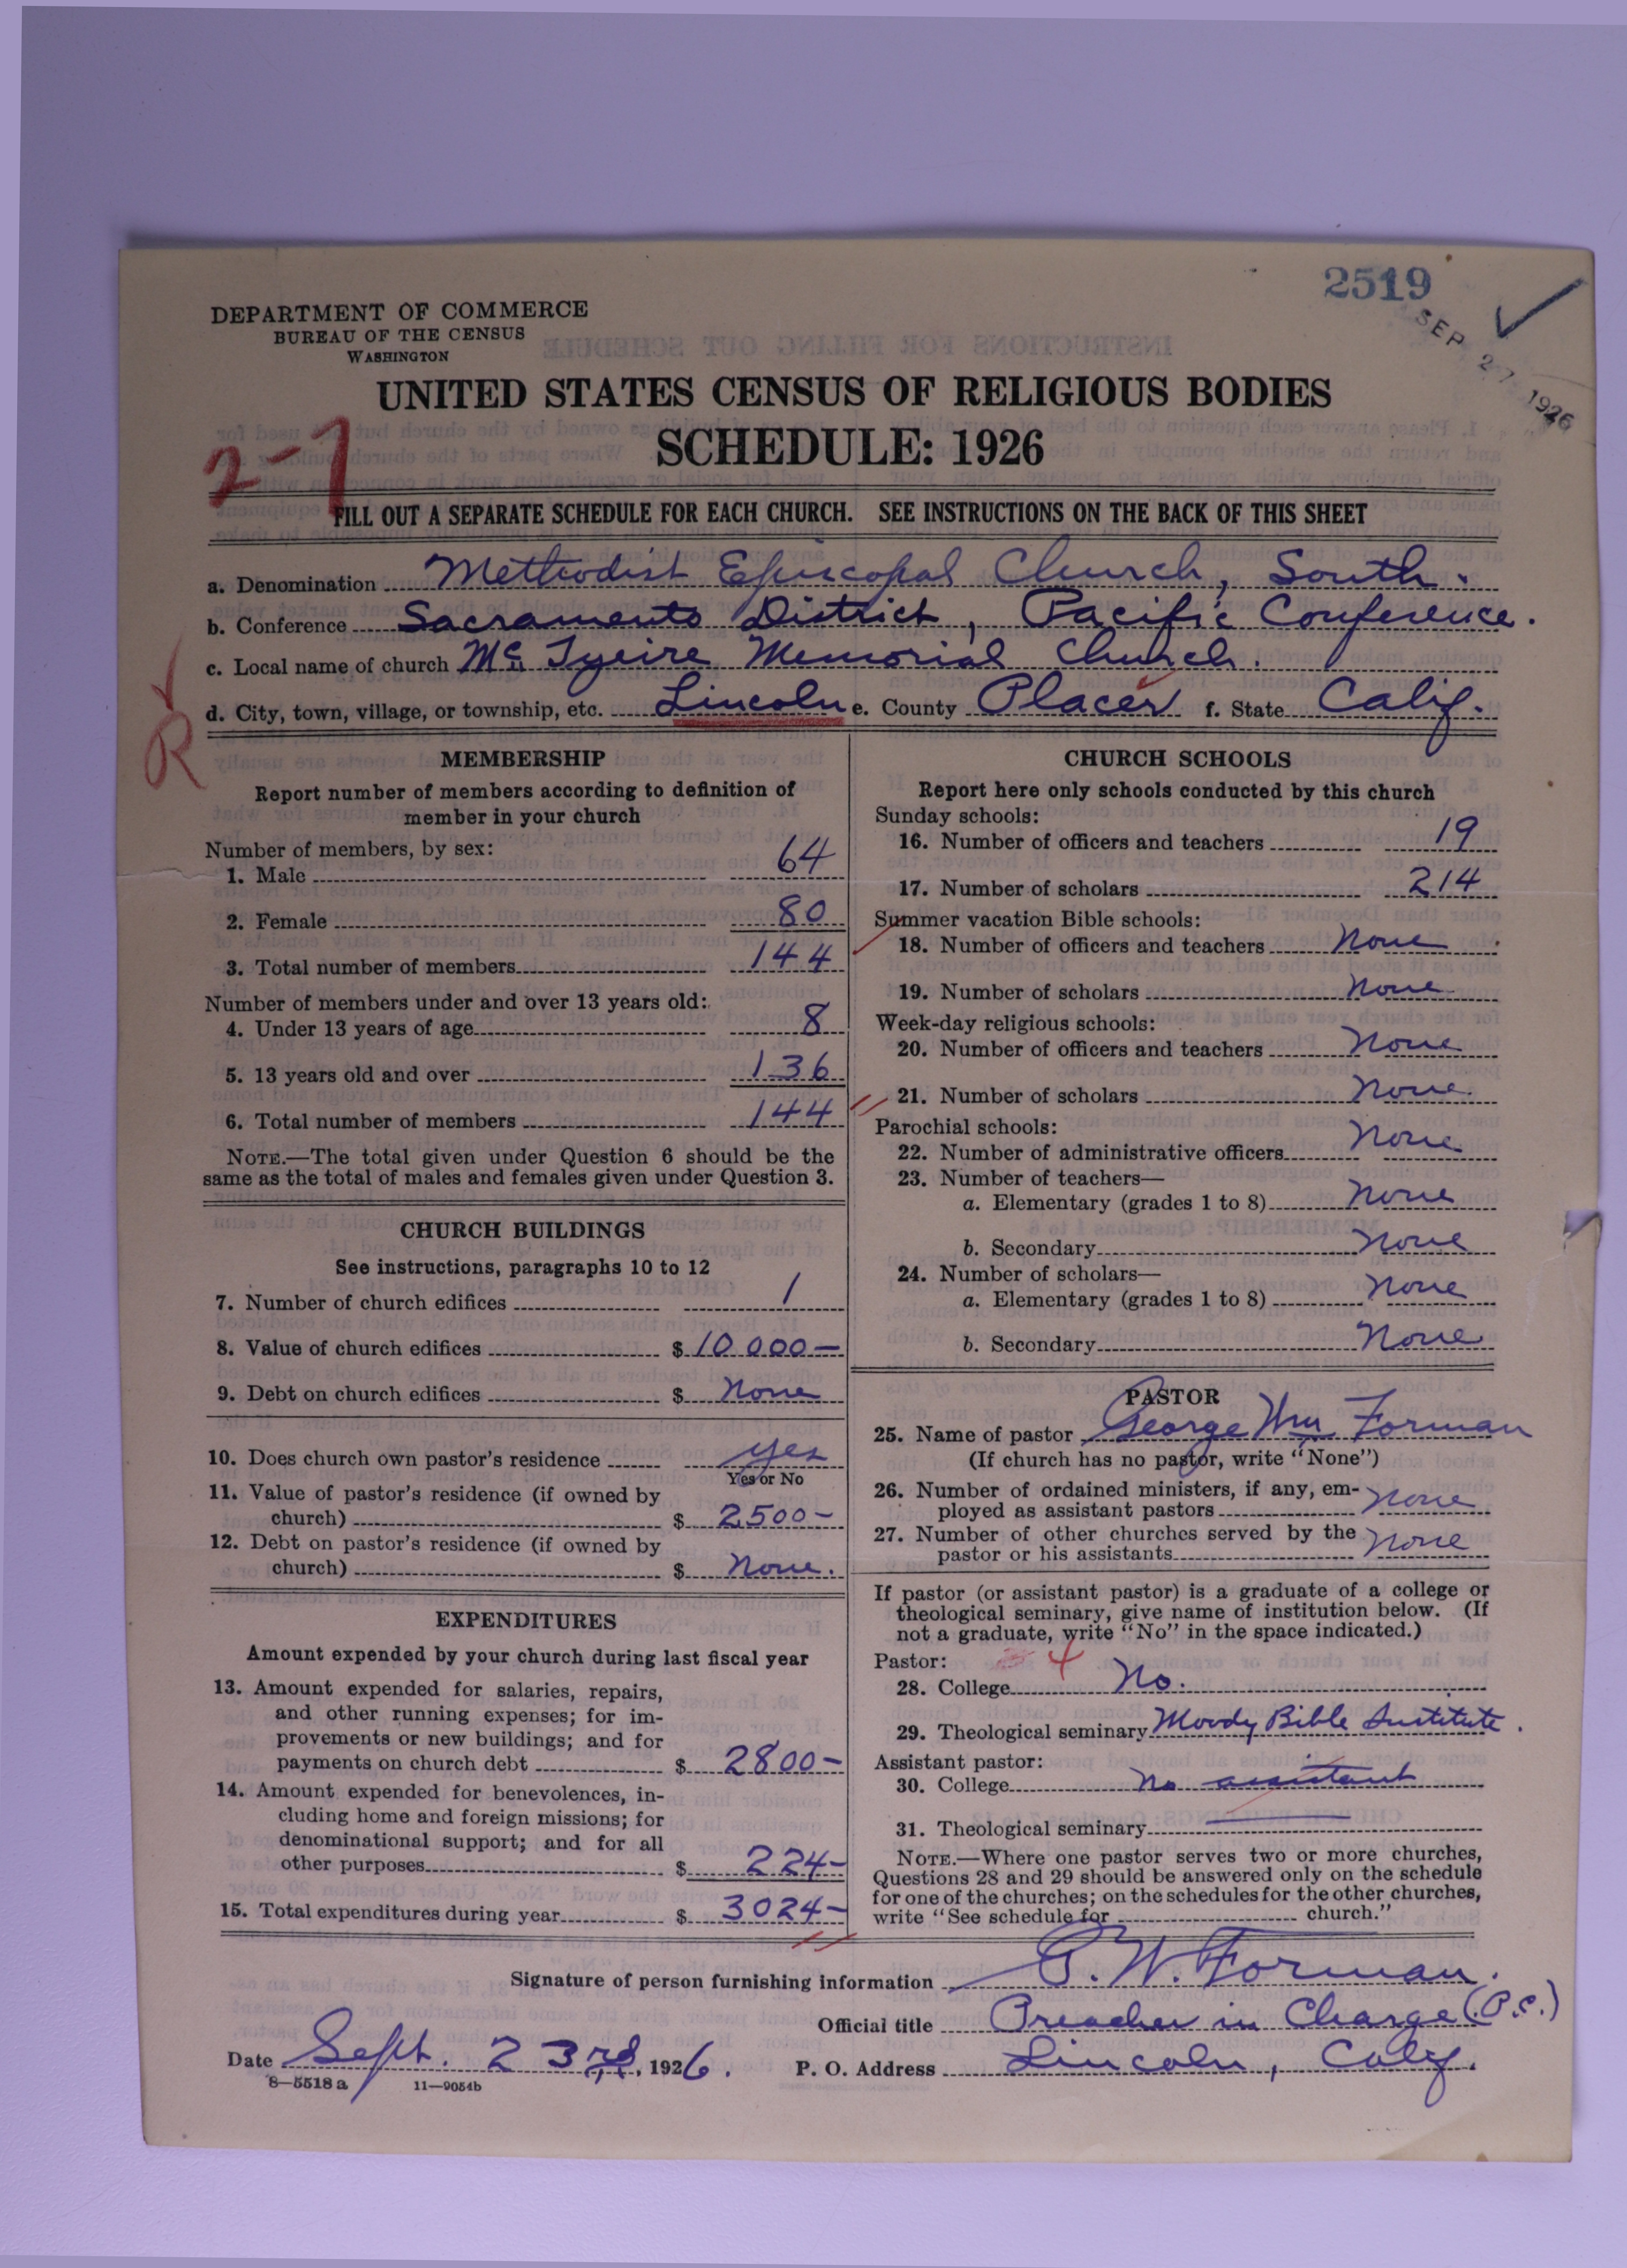 2519
SEP 27 1926
DEPARTMENT OF COMMERCE
BUREAU OF THE CENSUS
WASHINGTON
UNITED STATES CENSUS OF RELIGIOUS BODIES
SCHEDULE: 1926
2-7
FILL OUT A SEPARATE SCHEDULE FOR EACH CHURCH. SEE INSTRUCTIONS ON THE BACK OF THIS SHEET
a. Denomination Methodist Episcopal Church, South.
b. Conference Sacramento District, Pacific Conference.
c. Local name of church McTyeire Memorial Church.
d. City, town, village, or township, etc. Lincoln e. County Placer f. State Calif.
R
MEMBERSHIP
Report number of members according to definition of
member in your church
Number of members, by sex:
1. Male 64
2. Female 80
3. Total number of members 144
Number of members under and over 13 years old:
4. Under 13 years of age 8
5. 13 years old and over 136
6. Total number of members 144
NOTE.—The total given under Question 6 should be the
same as the total of males and females given under Question 3.
CHURCH BUILDINGS
See instructions, paragraphs 10 to 12
7. Number of church edifices 1
8. Value of church edifices $ 10 000—
9. Debt on church edifices $ None
10. Does church own pastor's residence yes
Yes or No
11. Value of pastor's residence (if owned by
church) $ 2500—
12. Debt on pastor's residence (if owned by
church) $ None.
EXPENDITURES
Amount expended by your church during last fiscal year
13. Amount expended for salaries, repairs,
and other running expenses; for im-
provements or new buildings; and for
payments on church debt $ 2800—
14. Amount expended for benevolences, in-
cluding home and foreign missions; for
denominational support; and for all
other purposes $ 224—
15. Total expenditures during year $ 3024—
CHURCH SCHOOLS
Report here only schools conducted by this church
Sunday schools:
16. Number of officers and teachers 19
17. Number of scholars 214
Summer vacation Bible schools:
18. Number of officers and teachers None
19. Number of scholars None
Week-day religious schools:
20. Number of officers and teachers None
21. Number of scholars None.
Parochial schools:
22. Number of administrative officers None
23. Number of teachers—
a. Elementary (grades 1 to 8) None
b. Secondary None
24. Number of scholars—
a. Elementary (grades 1 to 8) None
b. Secondary None
PASTOR
25. Name of pastor George Wm Forman
(If church has no pastor, write "None")
26. Number of ordained ministers, if any, em-
ployed as assistant pastors None
27. Number of other churches served by the
pastor or his assistants None
If pastor (or assistant pastor) is a graduate of a college or
theological seminary, give name of institution below. (If
not a graduate, write "No" in the space indicated.)
Pastor: 4
28. College No.
29. Theological seminary Moody Bible Institute.
Assistant pastor:
30. College No assistant
31. Theological seminary
NOTE.—Where one pastor serves two or more churches,
Questions 28 and 29 should be answered only on the schedule
for one of the churches; on the schedules for the other churches,
write "See schedule for church."
Signature of person furnishing information G. W. Forman.
Official title Preacher in Charge (P.C.)
Date Sept. 23rd, 1926. P. O. Address Lincoln, Calif.
8—5518 a 11—9054b